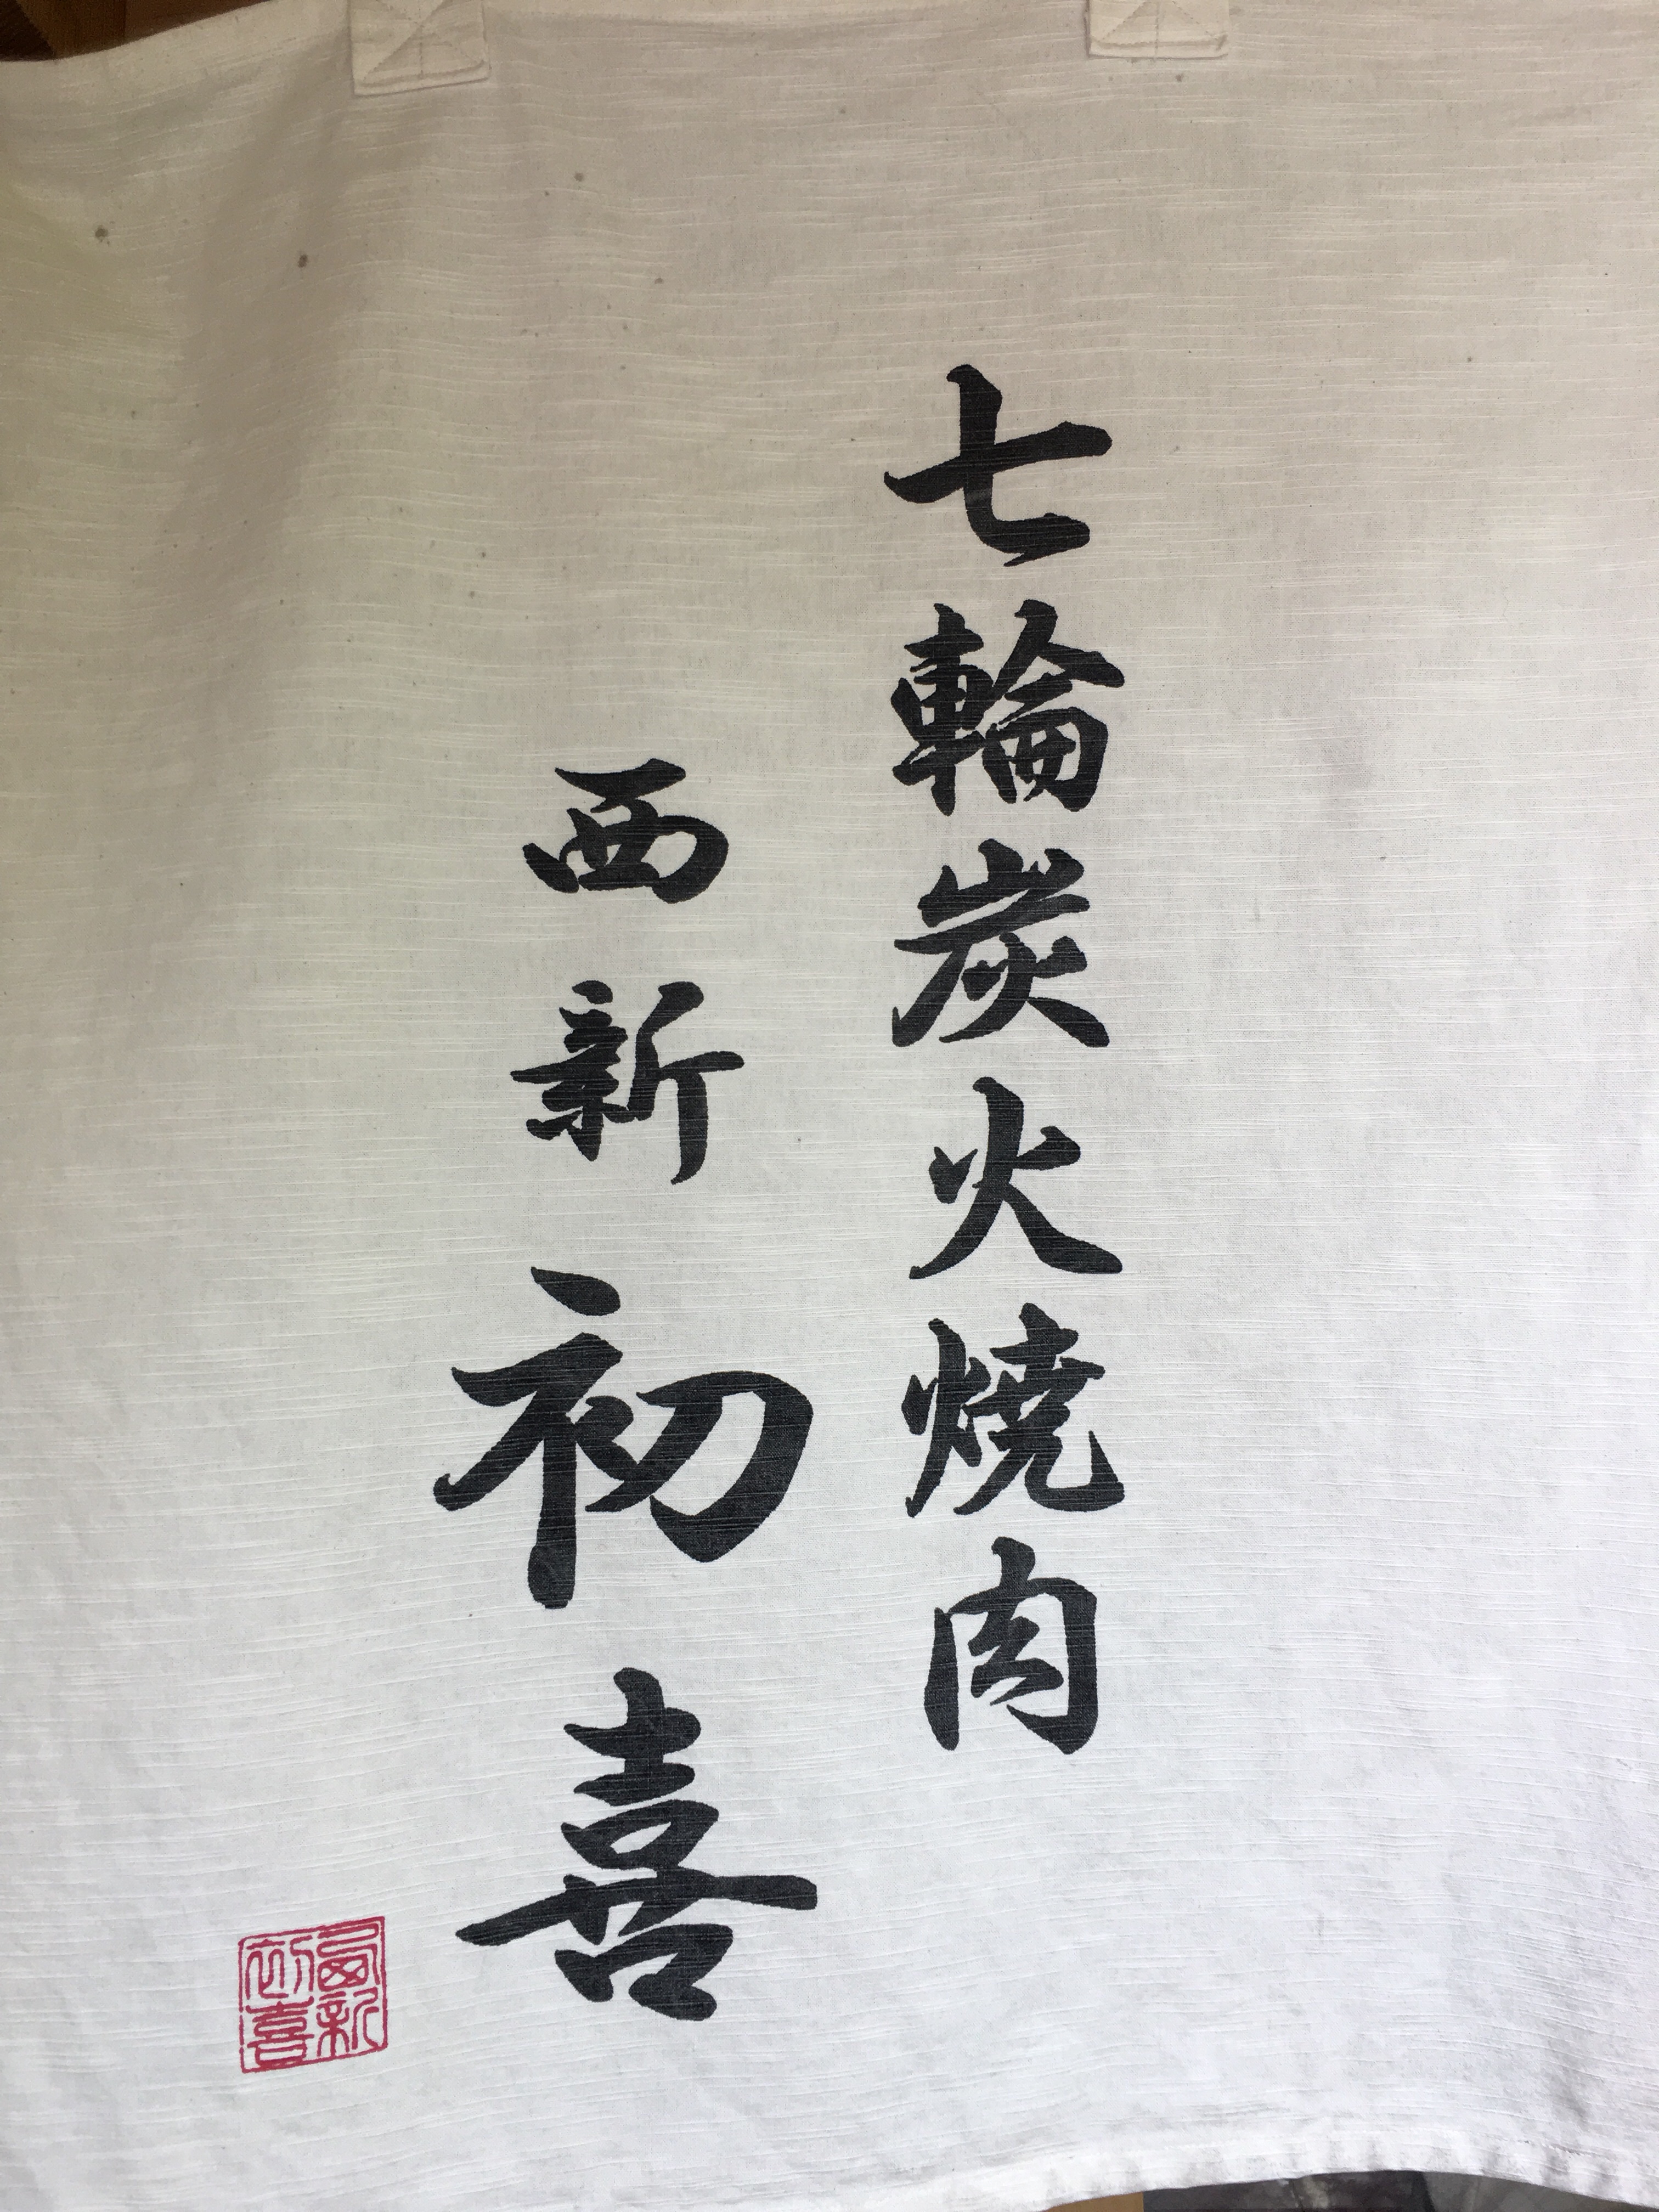 七輪炭火焼肉
西新初喜
西新
初喜